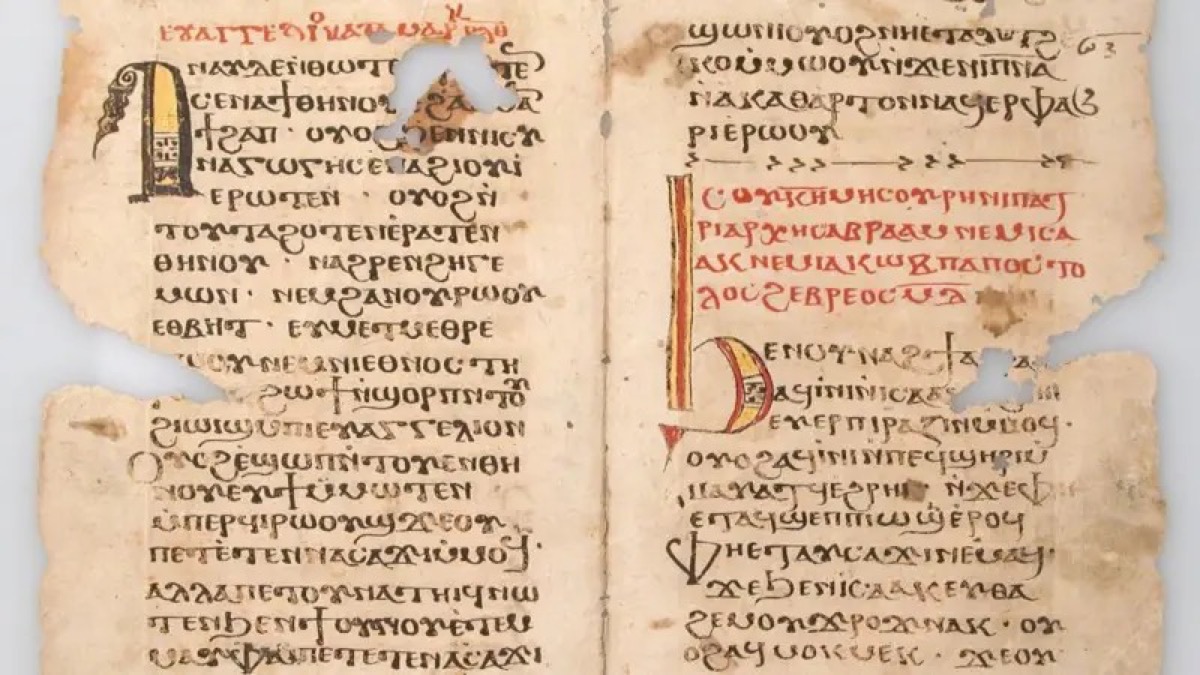 ⲉⲩⲁⲅⲅⲉⲗⲓⲟ ⲕⲁⲧⲁ ⲙⲁⲣ
ⲁⲛⲁⲩ ⲇⲉ ⲛⲑⲱⲧⲉ
ⲥⲉⲛⲁϯⲑⲏⲛⲟⲩ
ϯϩⲁⲡ · ⲟⲩⲟϩ ϧⲉⲛ ⲛⲓⲥⲩ
ⲛⲁⲅⲱⲅⲏ ⲥⲉⲛⲁϩⲓⲟⲩⲓ
ⲉⲣⲱⲧⲉⲛ · ⲟⲩⲟϩ ⲛ
ⲧⲟⲩⲧⲁϩⲟⲧⲉⲛ ⲉⲣⲁⲧⲉⲛ
ⲑⲏⲛⲟⲩ · ⲛⲁϩⲣⲉⲛ ϩⲏⲅⲉ
ⲙⲱⲛ · ⲛⲉⲙ ϩⲁⲛⲟⲩⲣⲱⲟⲩ
ⲉⲑⲃⲏⲧ · ⲉⲩⲙⲉⲧⲙⲉⲑⲣⲉ
ⲱⲟⲩ ⲛⲉⲙ ⲛⲓⲉⲑⲛⲟⲥ ⲧⲏ
ϩⲱϯ ⲛϣⲟⲣⲡ ⲛⲧⲟⲩ
ϩⲓⲱⲓϣ ⲙⲡⲓⲉⲩⲁⲅⲅⲉⲗⲓⲟⲛ
ⲟⲩⲟϩ ⲉϣⲱⲡ ⲛⲧⲟⲩⲉⲛⲑⲏ
ⲛⲟⲩ ⲉⲩϯ ⲙⲙⲱⲧⲉⲛ
ⲙⲡⲉⲣϥⲓⲣⲱⲟⲩϣ ϫⲉ ⲟⲩ
ⲡⲉⲧⲉⲧⲉⲛⲛⲁⲥⲁϫⲓ ⲙⲙⲟϥ ·
ⲁⲗⲗⲁ ⲡⲉⲧⲟⲩⲛⲁⲧⲏⲓϥ ⲛⲱ
ⲧⲉⲛ ϧⲉⲛ ϯⲟⲩⲛⲟⲩ ⲉⲧⲉⲙ
ⲙⲁⲩ ⲫⲁⲓ ⲡⲉⲧⲉⲧⲉⲛⲁⲥⲁϫⲓ
ϣⲱⲛⲓ ⲟⲩⲟϩ ⲛⲏ
ⲙⲱⲟⲩ ⲛϫⲉ ⲛⲓⲡⲛⲁ
ⲛⲁⲕⲁⲑⲁⲣⲧⲟⲛ ⲛⲁϥⲉⲣⲫⲁϧ
ⲣⲓ ⲉⲣⲱⲟⲩ
ⲥⲟⲩ ⲕⲏ ⲙⲏⲥⲟⲩⲣⲏ ⲛⲓⲡⲁⲧ
ⲣⲓⲁⲣⲭⲏⲥ ⲁⲃⲣⲁⲁⲙ ⲛⲉⲙ ⲓⲥⲁ
ⲁⲕ ⲛⲉⲙ ⲓⲁⲕⲱⲃ ⲡⲁⲡⲟⲥⲧⲟ
ⲗⲟⲥ ϩⲉⲃⲣⲉⲟⲥ
ϧⲉⲛ ⲟⲩⲛⲁϩϯ
ⲁϥⲓⲛⲓ ⲛⲓⲥⲁⲁⲕ
ⲉⲩⲉⲣⲡⲓⲣⲁⲍⲓⲛ ⲙⲙⲟϥ ·
ⲟⲩⲟϩ ⲁϥⲓⲛⲓ ⲙⲡⲉϥϣⲏⲣⲓ
ⲙⲙⲁⲩⲁⲧϥ ⲉϩⲣⲏⲓ · ⲛϫⲉ ⲫⲏ
ⲉⲧⲁϥϣⲉⲡ ⲡⲓⲱϣ ⲉⲣⲟϥ
ⲫⲏ ⲉⲧⲁⲩⲥⲁϫⲓ ⲛⲉⲙⲁϥ ·
ϫⲉ ϧⲉⲛ ⲓⲥⲁⲁⲕ ⲉⲩⲑⲁ
ϩⲉⲙ ⲟⲩϫⲣⲟϫ ⲛⲁⲕ · ⲟⲩ
ⲟϩ ⲁϥⲙⲟⲕⲙⲉⲕ · ϫⲉ ⲟⲩ